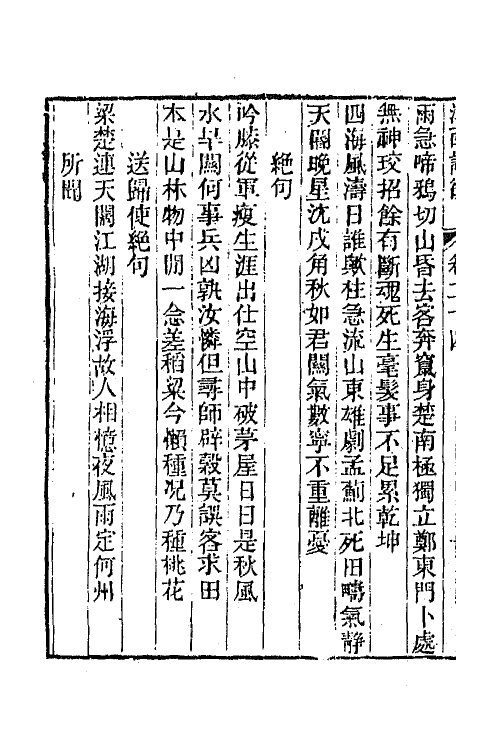 雨急啼鴉切山昏去客奔竄身楚南極獨立鄭東門卜處
無神珓招餘有斷魂死生毫髮事不足累乾坤
四海風濤日誰歟柱急流山東雄劇孟薊北死田疇氣静
天關晚星沈戍角秋如君關氣數寧不重離憂
絶句
吟膝從軍瘦生涯出仕空山中破茅屋日日是秋風
水旱關何事兵凶孰汝憐但尋師辟穀莫誤客求田
本是山林物中閒一念差稻粱今懶種况乃種桃花
送歸使絶句
梁楚連天闊江湖接海浮故人相憶夜風雨定何州
所聞